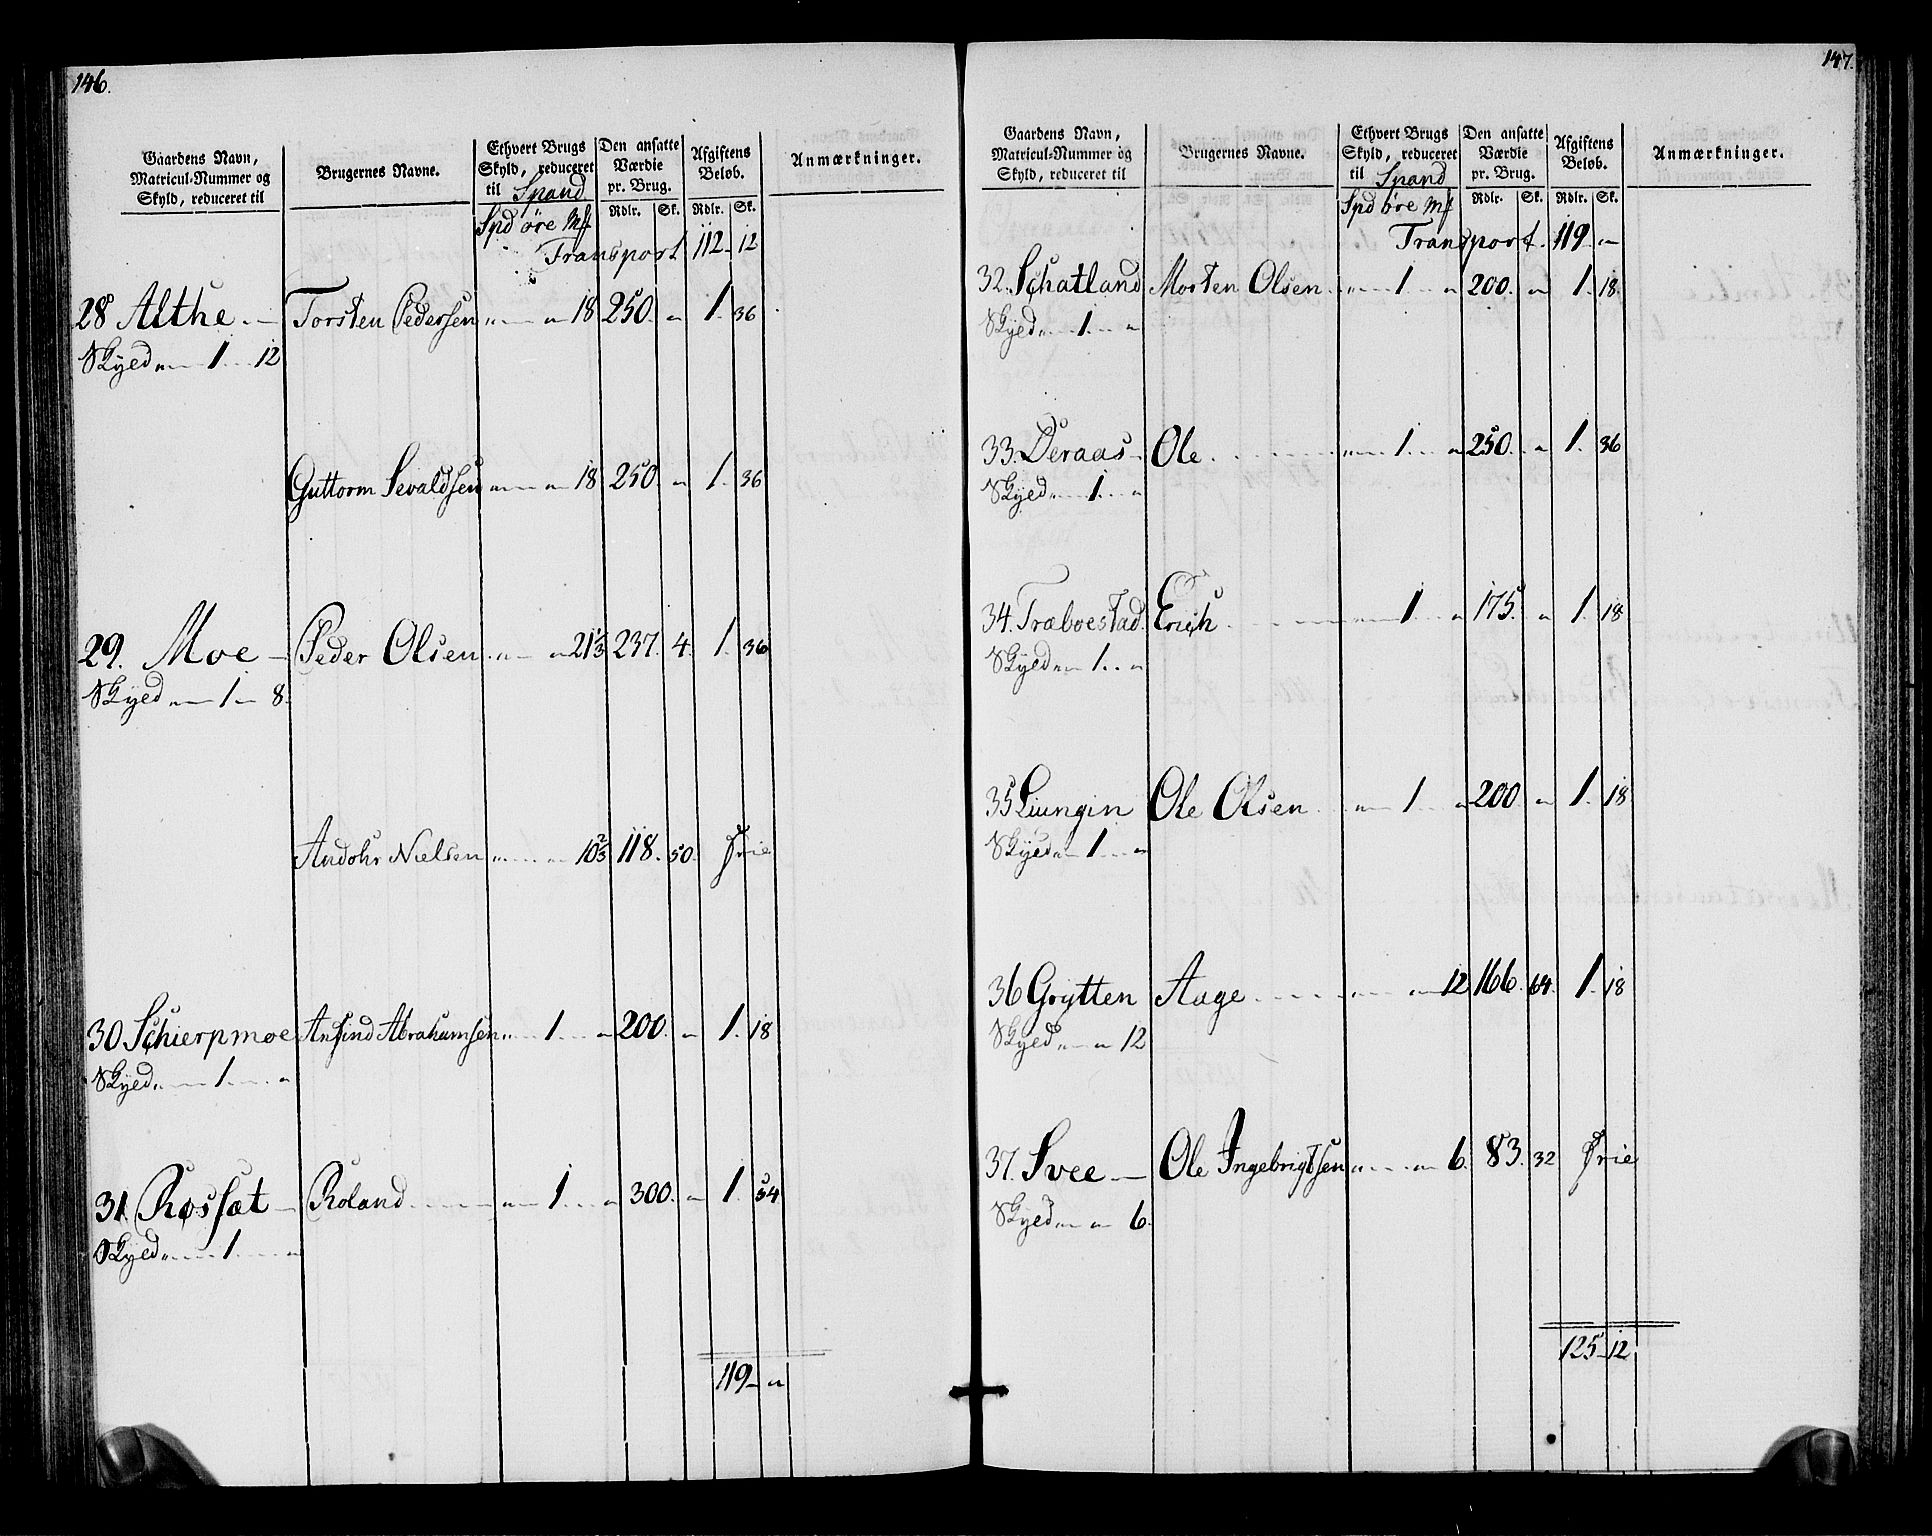 146.
Gaardens Navn, Matricul-Nummer og Skyld, reduceret til
Brugernes Navne.
Ethvert Brugs Skyld, reduceret til Spand
Den ansatte Værdie pr. Brug.
Afgiftens Beløb.
Anmærkninger.
Spd öre Mk Rdlr. Sk. Rdlr. Sk.
Transport 112 12
28 Althe. Torsten Pedersen „ „ 18 250. „ 1. 36
Skyld „ 1. 12
Guttorm Sevaldsen „ „ 18 250. „ 1. 36
29. Moe Peder Olsen „ „ 21⅓ 237. 4. 1. 36
Skyld „ 1 8.
Andohr Nielsen „ „ 10⅔ 118. 50. Frie
30 Schierpmoe Anfind Abrahamsen „ 1. „ 200. „ 1. 18
Skyld „ 1. „
31. Rossæt Roland „ 1. „ 300. „ 1. 54
Skyld „ 1. „
119 „
147.
Gaardens Navn, Matricul-Nummer og Skyld, reduceret til
Brugernes Navne.
Ethvert Brugs Skyld, reduceret til Spand
Den ansatte Værdie pr. Brug.
Afgiftens Beløb.
Anmærkninger.
Spd öre Mk Rdlr. Sk. Rdlr. Sk.
Transport. 119 „
32. Schatland Morten Olsen „ 1. „ 200. „ 1. 18.
Skyld „ 1. „
33. Deraas Ole „ 1. „ 250. „ 1. 36
Skyld „ 1. „
34. Træboestad. Erich „ 1. „ 175. „ 1. 18
Skyld „ 1. „
35 Liungin Ole Olsen „ 1. „ 200 „ 1. 18
Skyld „ 1. „
36 Grytten Aage „ „ 12 166. 64. 1. 18
Skyld „ „ 12
37. Svee Ole Ingebrigtsen „ „ 6. 83. 32 Frie
Skyld „ „ 6.
125 12.